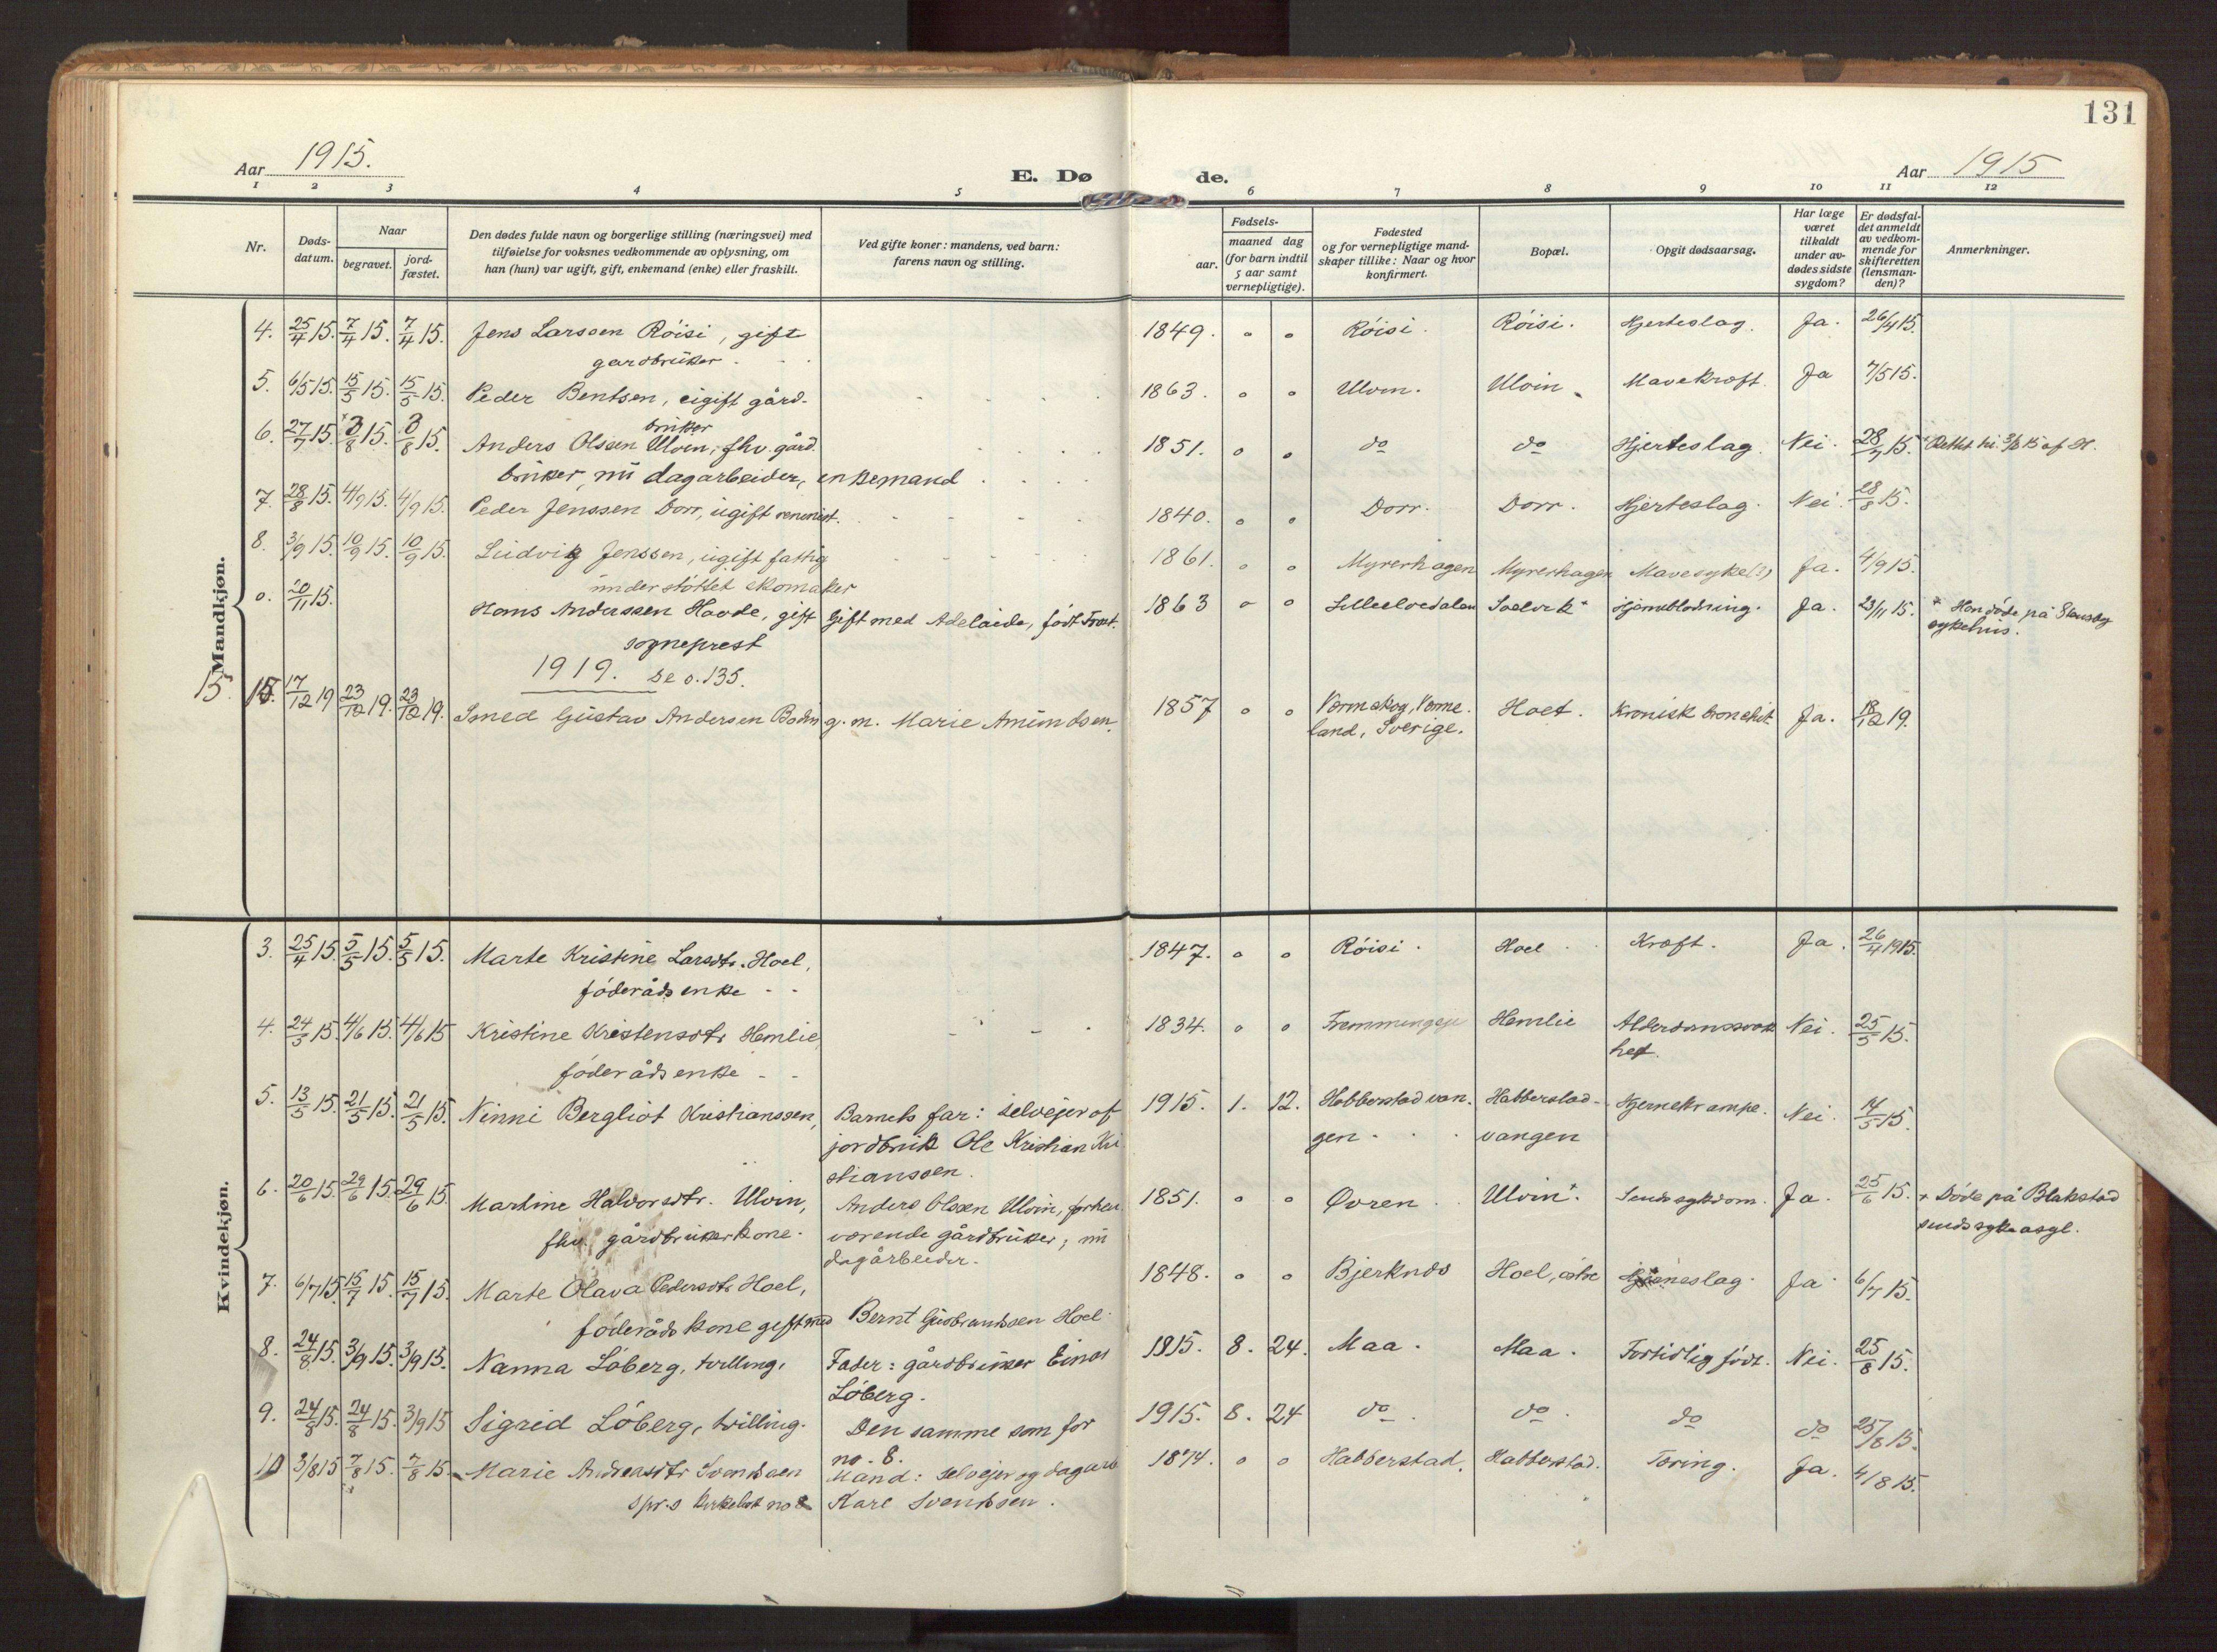 131
Aar 1915.
E. Dø de.
Aar 1915
1 2 3 4 5 6 7 8 9 10 11 12
Nr.
Døds-
datum.
Naar
begravet.
jord-
fæstet.
Den dødes fulde navn og borgerlige stilling (næringsvei) med
tilføielse for voksnes vedkommende av oplysning, om
han (hun) var ugift, gift, enkemand (enke) eller fraskilt.
Ved gifte koner: mandens, ved barn:
farens navn og stilling.
Fødsels-
aar.
maaned dag
(for barn indtil
5 aar samt
vernepligtige).
Fødested
og for vernepligtige mand-
skaper tillike: Naar og hvor
konfirmert.
Bopæl.
Opgit dødsaarsag.
Har læge
været
tilkaldt
under av-
dødes sidste
sygdom?
Er dødsfal-
det anmeldt
av vedkom-
mende for
skifteretten
(lensman-
den)?
Anmerkninger.
Mandkjøn.
4. 25/4 15. 7/4 15. 7/4 15. Jens Larssen Röisi, gift 1849. o o Röisi. Röisi. Hjerteslag. Ja. 26/4 15.
gardbruker
5. 6/5 15. 15/5 15. 15/5 15. Peder Bentsen, eigift gård- 1863. o o Ulvin. Ulvin. Mavekræft. Ja 7/5 15.
bruker
6. 27/7 15. 3/8 15. 3/8 15. Anders Olssen Ulvin, fhv. gård 1851. o o do do Hjerteslag. Nei. 28/7 15. Rettet
bruker, nu dagarbeider, enkemand
7. 28/8 15. 4/9 15. 4/9 15. Peder Jenssen Dorr, ugift 1840. o o Dorr. Dorr. Hjerteslag. Nei. 28/8 15.
8. 3/9 15. 10/9 15. 10/9 15. Ludvig Jenssen, ugift fattig 1861. o o Myrerhagen Myrerhagen Mavesyke(?) Ja. 4/9 15.
understöttet skomaker
o. 20/11 15. Hans Anderssen Hovde, gift Gift med Adelaide, født 1863 o o Lilleelvedalen Hjerneblödning. Ja. 23/11 15. * Han döde på Stensby
sykehus.
sogneprest
1919. Se s. 135.
15. 15. 17/12 19 23/12 19. 23/12 19. Smed Gustav Andersen g. m. Marie Amundsen. 1857 o o Vermskog, Verme- Hoel. Kronisk bronchit. Ja. 18/12 19.
land, Sverige.
Kvindekjøn.
3. 25/4 15 5/5 15. 5/5 15. Marte Kristine Larsdtr. Hoel, 1847. o o Röisi. Hoel Kræft. Ja. 26/4 1915.
föderåds enke
4. 24/5 15. 4/6 15. 4/6 15 Kristine Kristensdtr Hemlie, 1834. o o Hemlie Nei. 25/5 15.
het.
föderåds enke
5. 13/5 15. 21/5 15. 21/5 15. Ninni Bergliot Kristianssen, Barnets far: selveier af 1915. 1. 12. Habberstadvan- Habberstad- Hjernekrampe. Nei. 14/5 15.
jordbruk Ole Kristian Kri gen vangen
stianssen.
6. 20/6 15. 29/6 15. 29/6 15. Martine Haldorsdtr. Ulvin, Anders Olssen Ulvin, forhen- 1851. o o Øvren Ulvin+. Sindssykdom. Ja. 25/6 15. + Döde på Blakstad
sindssykeasyl.
fhv. gårdbrukerkone. værende gårdbruker, nu
dagarbeider.
7. 6/7 15 15/7 15. 15/7 15. Marte Olava Pedersdtr Hoel, 1848. o o Bjerknes Hoel, østre Ja 6/7 15.
föderåds kone gift med Bernt Gudbrandsen Hoel
8. 24/8 15. 3/9 15. 3/9 15. Nanna Löberg, tvilling, Fader: gårdbruker Einar 1915. 8. 24. Maa. Maa. Fortidlig født. Nei. 25/8 15.
Löberg.
9. 24/8 15. 24/8 15. 3/9 15 Sigrid Löberg, tvilling. Den samme som for 1915. 8. 24 do. do. do do 25/8 15.
no. 8.
10 3/8 15 7/8 15. 7/8 15. Marie Andreasdtr Svendsen Mand: selveier og dagarb 1874. o o Habberstad. Habberstad. Tæring. Ja. 4/8 15.
Kare Svendsen.